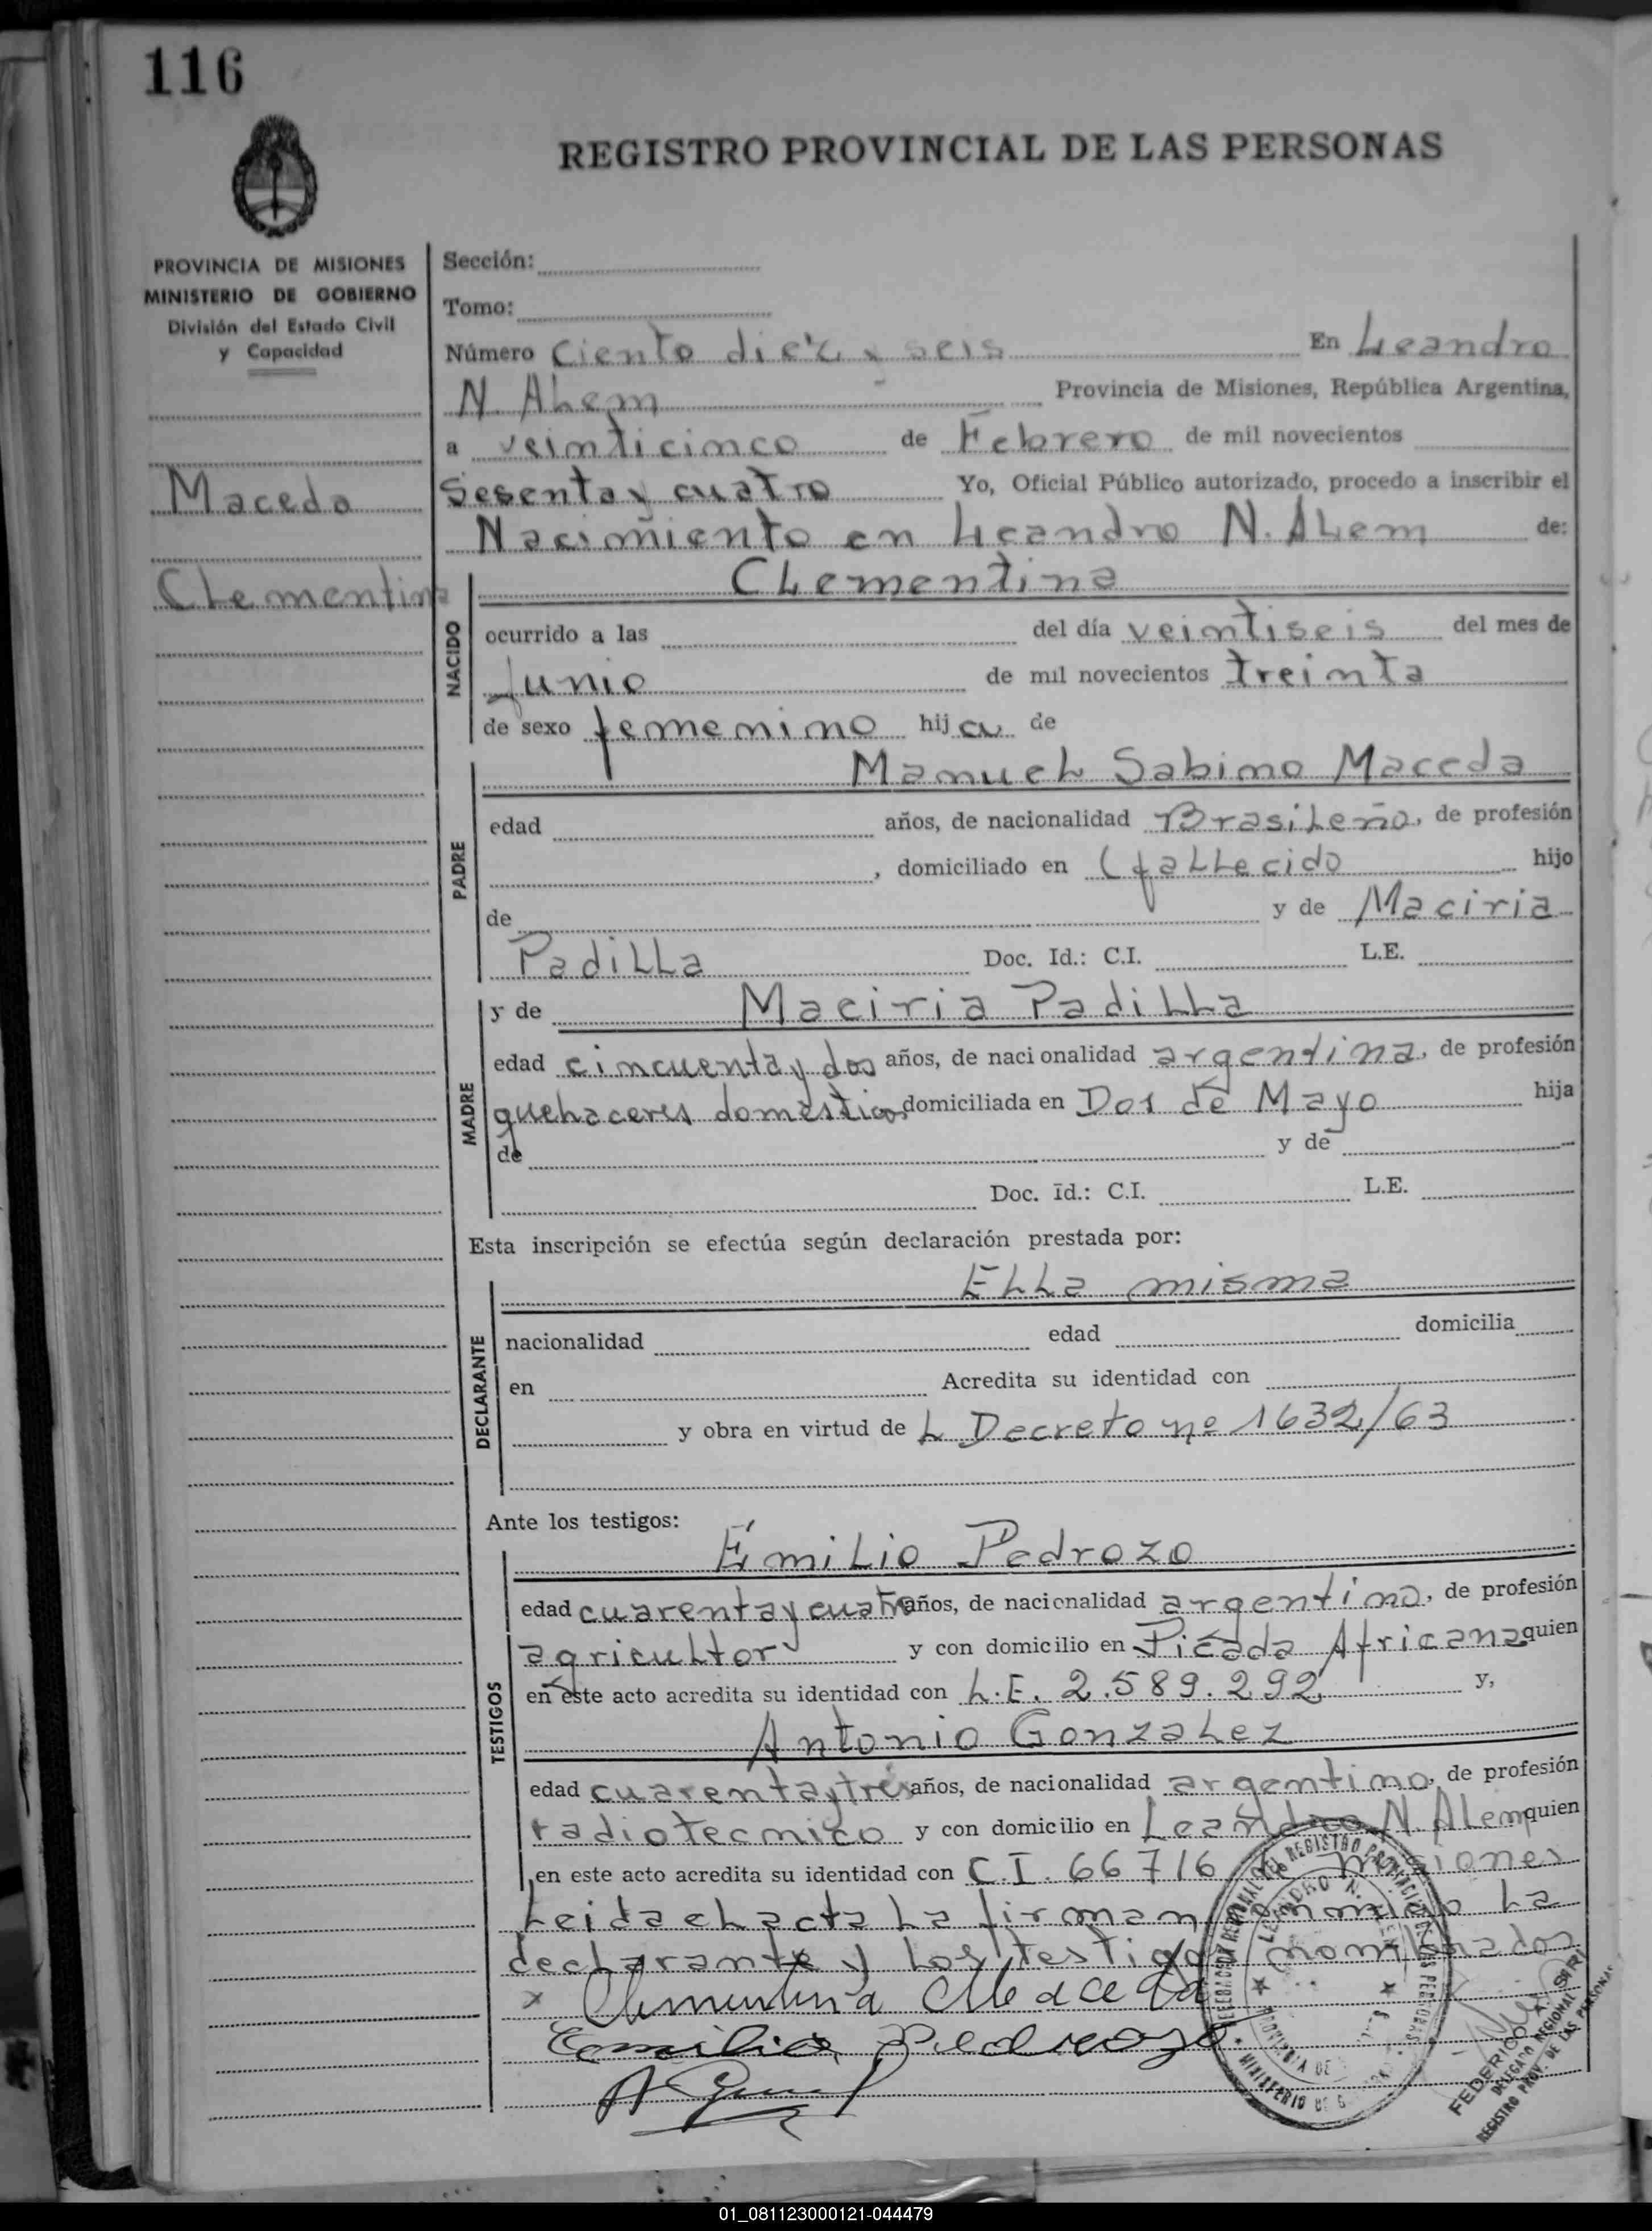 116
REGISTRO PROVINCIAL DE LAS PERSONAS
PROVINCIA DE MISIONES
MINISTERIO DE GOBIERNO
División del Estado Civil
y Capacidad
Maceda
Clementina
Sección:
Tomo:
Número Ciento diez y seis En Leandro
N. Alem Provincia de Misiones, República Argentina,
a veinticinco de Febrero de mil novecientos
Sesenta y cuatro Yo, Oficial Público autorizado, procedo a inscribir el
Nacimiento en Leandro N. Alem de:
NACIDO
Clementina
ocurrido a las del día veintiseis del mes de
Junio de mil novecientos treinta
de sexo femenino hija de
PADRE
Manuel Sabino Maceda
edad años, de nacionalidad Brasileño, de profesión
, domiciliado en (fallecido hijo
de y de Maciria
Padilla Doc. Id.: C.I. L.E.
MADRE
y de Maciria Padilla
edad cincuenta y dos años, de nacionalidad argentina, de profesión
quehaceres domésticos domiciliada en Dos de Mayo hija
de y de
Doc. Id.: C.I. L.E.
Esta inscripción se efectúa según declaración prestada por:
DECLARANTE
Ella misma
nacionalidad edad domicilia
en Acredita su identidad con
y obra en virtud de L Decreto nº 1632/63
Ante los testigos:
TESTIGOS
Emilio Pedrozo
edad cuarenta y cuatro años, de nacionalidad argentino, de profesión
agricultor y con domicilio en Picada Africana quien
en este acto acredita su identidad con L.E. 2.589.292 y,
Antonio Gonzalez
edad cuarenta y tres años, de nacionalidad argentino, de profesión
radiotecnico y con domicilio en Leandro N. Alem quien
en este acto acredita su identidad con C.I. 66716 de Misiones
Leida el acta la firman conmigo la
declarante y los testigos nombrados
x Clementina Maceda
Emilio Pedrozo
DELEGACION REGIONAL DEL REGISTRO PROVINCIAL DE LAS PERSONAS
LEANDRO N. ALEM
PROVINCIA DE
MINISTERIO DE G
FEDERICO A.
DELEGADO REGIONAL
REGISTRO PROV. DE LAS PERSONAS
01_081123000121-044479